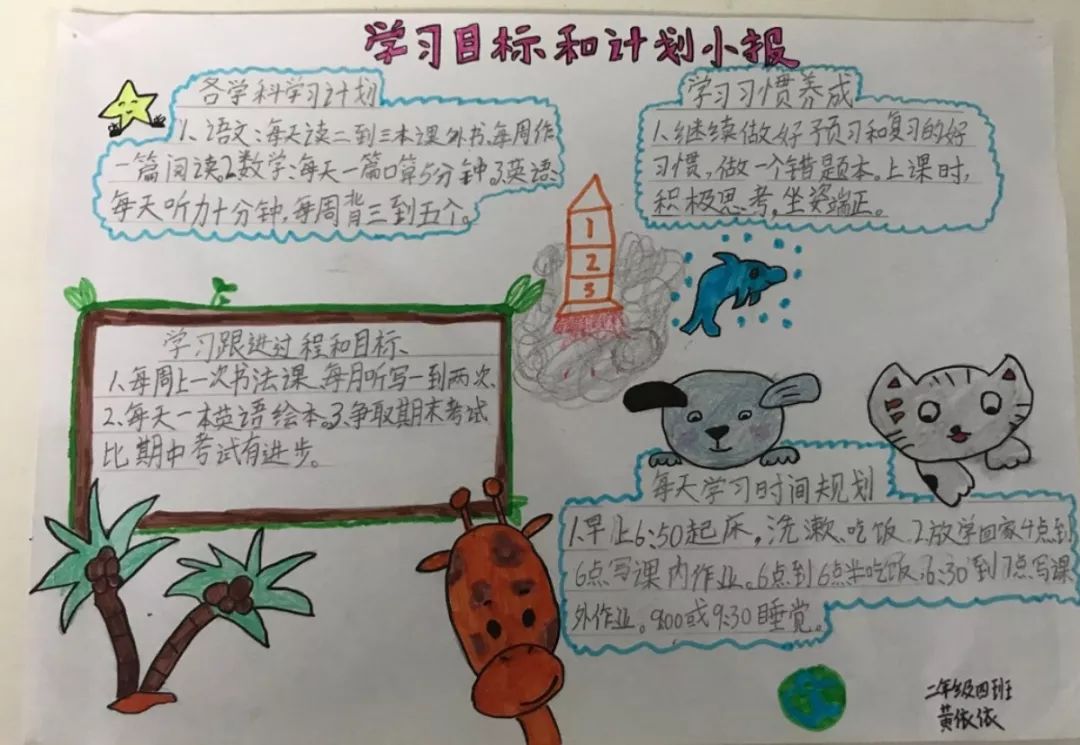 学习目标和计划小报
各学科学习计划
1、语文:每天读二到三本课外书、每周作
一篇阅读。2、数学:每天一篇口算5分钟。3、英语、
每天听力十分钟,每周背三到五个。
学习习惯养成
1、继续做好预习和复习的好
习惯,做一个错题本。上课时,
积极思考,坐姿端正。
1
2
3
学习跟进过程和目标、
1、每周上一次书法课、每月听写一到两次、
2、每天一本英语绘本。3、争取期末考试
比期中考试有进步。
每天学习时间规划
1、早上6:50起床,洗漱、吃饭、2、放学回家4点到
6点写课内作业。6点到6点半吃饭,6:30到7点写课
外作业。9:00或9:30睡觉。
二年级四班
黄依依